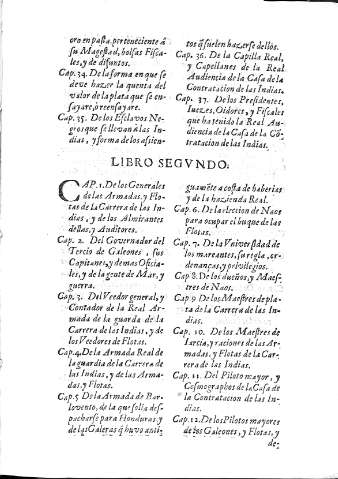 oro en pasta perteneciente à
su Magestad, bolsas Fisca-
les, y de difuntos.
Cap. 34. De la forma en que se
deve hazer la quenta del
valor de la plata que se en-
sayare, ò reensayare.
Cap. 35. De los Esclavos Ne-
gros que se llevan à las In-
dias, y forma de los asien-
tos q̃ suelen hazerse dellos.
Cap. 36. De la Capilla Real,
y Capellanes de la Real
Audiencia de la Casa de la
Contratacion de las Indias.
Cap. 37. De los Presidentes,
Iuezes, Oidores, y Fiscales
que ha tenido la Real Au-
diencia de la Casa de la Cõ-
tratacion de las Indias.
LIBRO SEGVNDO.
CAP. 1. De los Generales
de las Armadas, y Flo-
tas de la Carrera de las In-
dias, y de los Almirantes
dellas, y Auditores.
Cap. 2. Del Governador del
Tercio de Galeones, sus
Capitanes, y demas Oficia-
les, y de la gente de Mar, y
guerra.
Cap. 3. Del Veedor general, y
Contador de la Real Ar-
mada de la guarda de la
Carrera de los Indias, y de
los Veedores de Flotas.
Cap. 4. De la Armada Real de
la guardia de la Carrera de
las Indias, y de las Arma-
das, y Flotas.
Cap. 5. De la Armada de Bar-
lovento, de la que solia des-
pacharse para Honduras, y
de las Galeras q̃ huvo anti-
guamẽte a costa de haberias
y de la hazienda Real.
Cap. 6. De la eleccion de Naos
para ocupar el buque de las
Flotas.
Cap. 7. De la Vniversidad de
los mareantes, su regla, or-
denanças, y privilegios.
Cap 8. De los dueños, y Maes-
tres de Naos.
Cap 9 De los Maestres de pla-
ta de la Carrera de las In-
dias.
Cap. 10. De los Maestres de
Iarcia, y raciones de las Ar-
madas, y Flotas de la Car-
rera de las Indias.
Cap. 11. Del Piloto mayor, y
Cosmographos de la Casa de
la Contratacion de las In-
dias.
Cap. 12. De los Pilotos mayores
de los Galeones, y Flotas, y
de